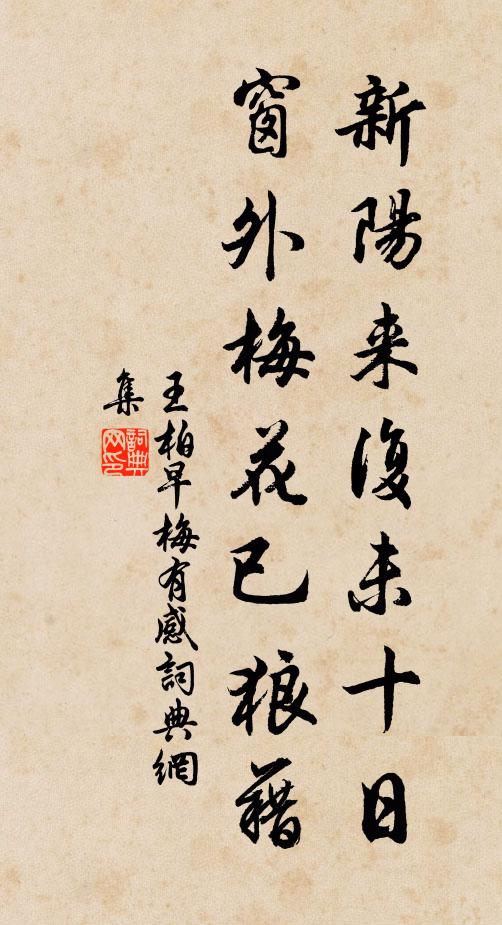 新陽来復未十日
窗外梅花已狼藉
王柏早梅有感詞典網
集
詞典网印